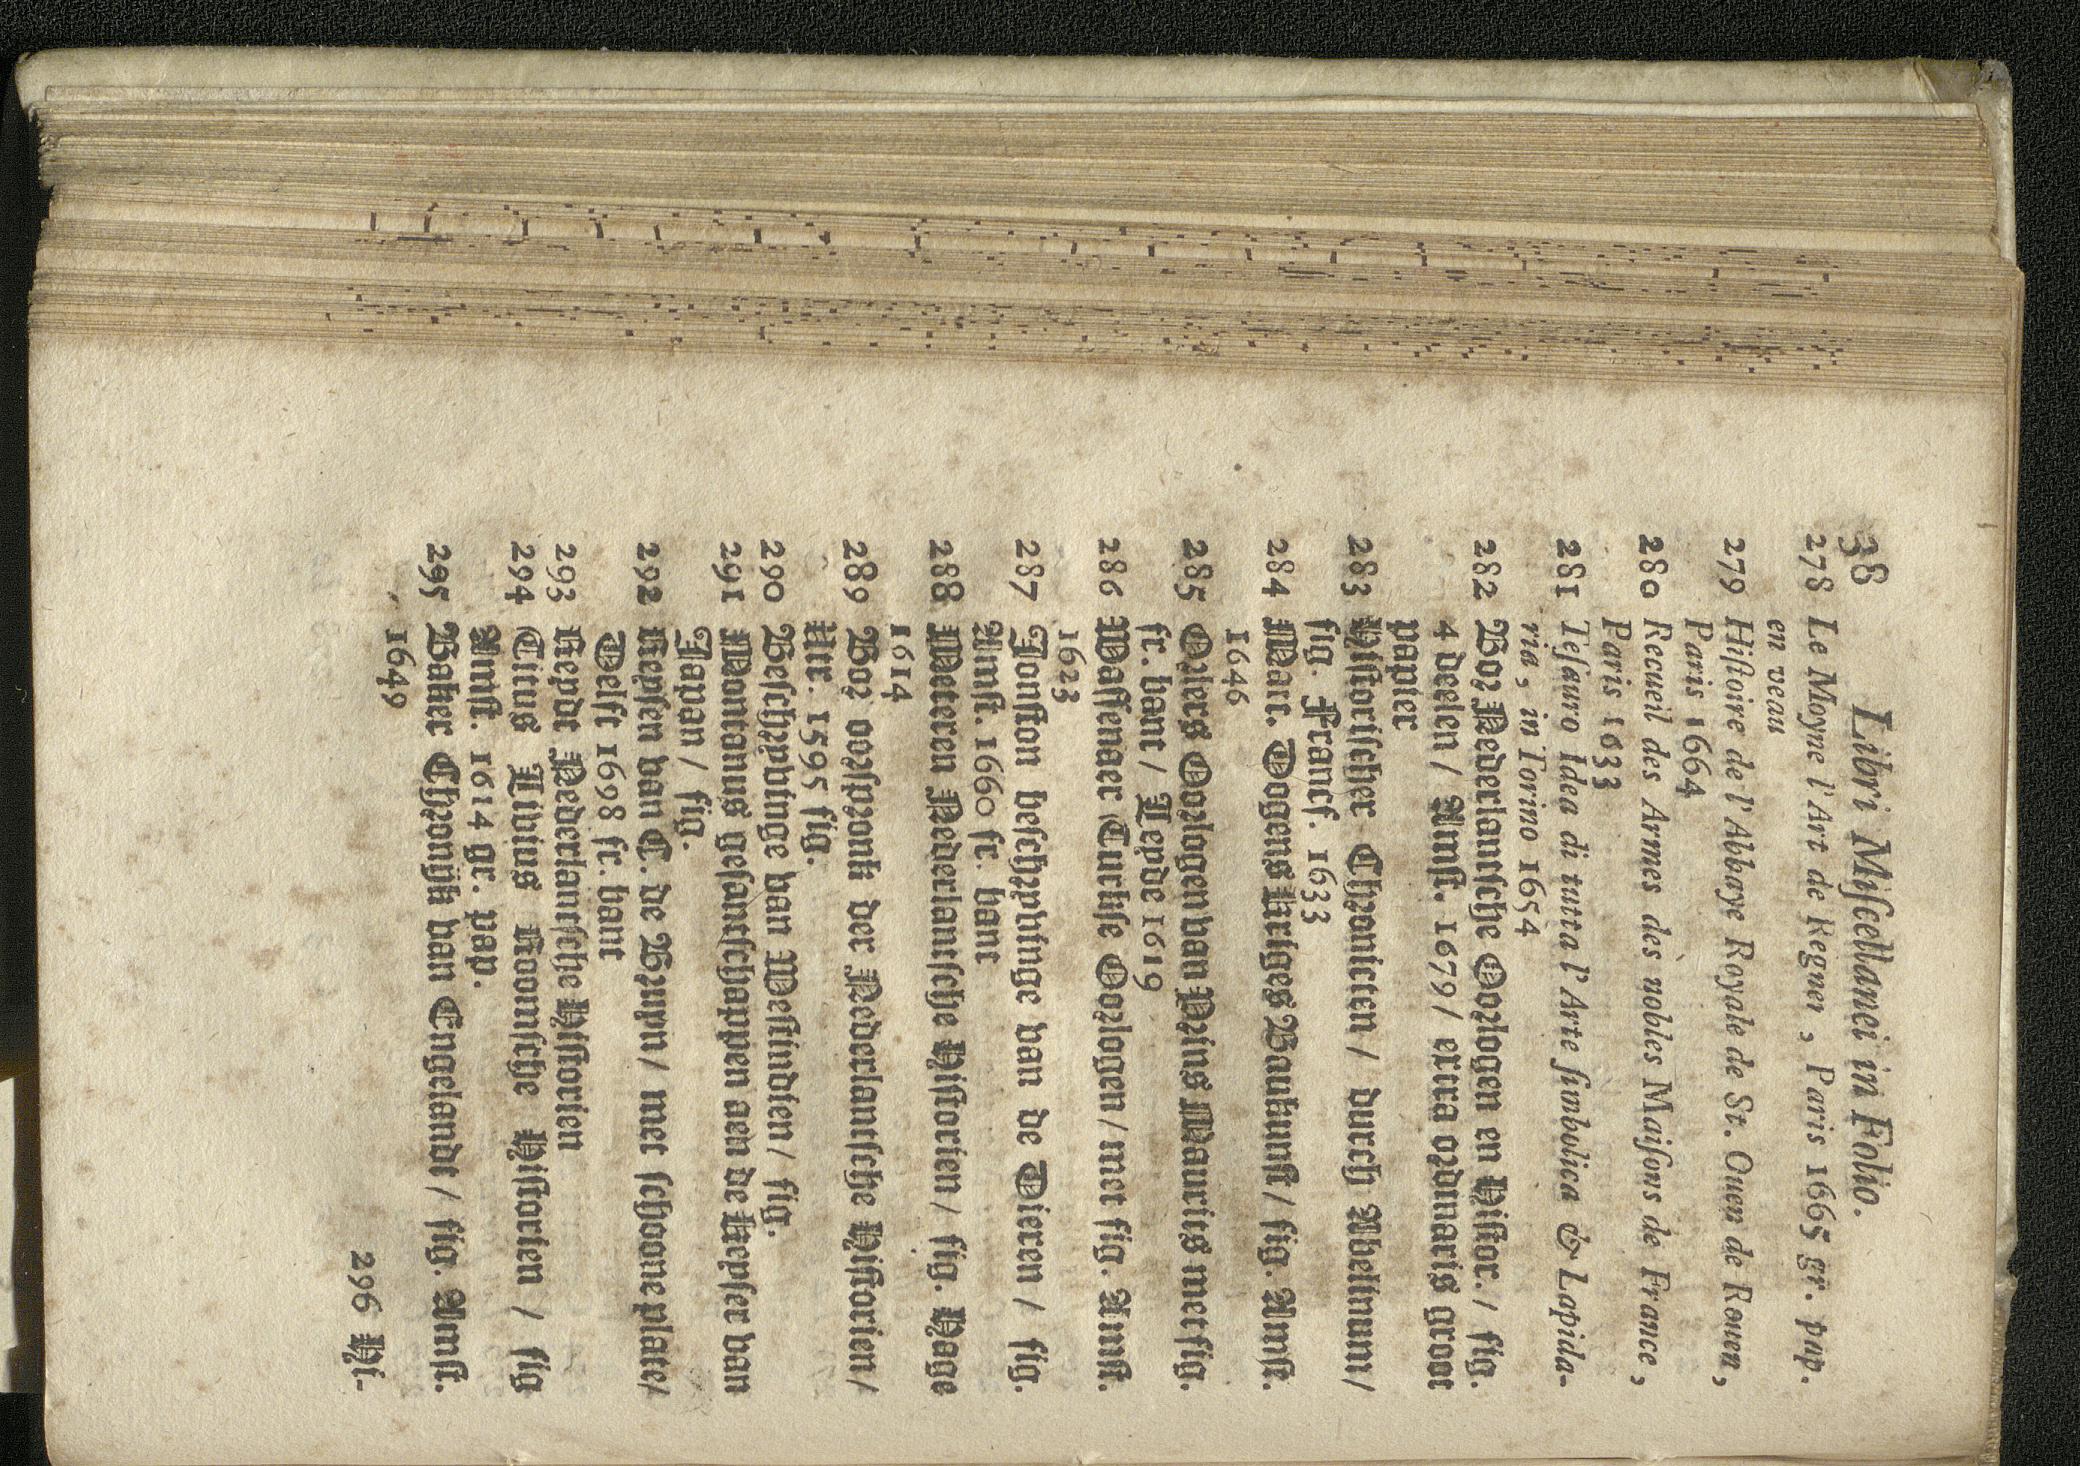 38 Libri Miſcellanei in Folio.
278 Le Moyne l'Art de Regner, Paris 1665 gr. pap.
en veau
279 Hiſtoire de l'Abbaye Royale de St. Ouen de Rouen,
Paris 1664
280 Recueil des Armes dès nobles Maiſons de France,
Paris 1633
281 Teſauro Idea di tutta l'Arte ſimbolica & Lapida-
ria, in Torino 1654
282 Boz Nederlantſche Oozlogen en Hiſtor. / fig.
4 deelen / Amſt. 1679 / extra ozdinaris groot
papier
283 Hiſtoriſcher Chzonicken / durch Abelinum /
fig. Francf. 1633
284 Mart. Dogens Kriges Baukunſt / fig. Amſt.
1646
285 Ozlers Oozlogen van Pzins Maurits met fig.
fr. bant / Leyde 1619
286 Waſſenaer Turkſe Oozlogen / met fig. Amſt.
1623
287 Jonſton beſchzyvinge van de Dieren / fig.
Amſt. 1660 fr. bant
288 Meteren Nederlantſche Hiſtorien / fig. Hage
1614
289 Boz oozſpzonk der Nederlantſche Hiſtorien /
Utr. 1595 fig.
290 Beſchzyvinge van Weſtindien / fig.
291 Montanus geſantſchappen aen de Keyſer van
Japan / fig.
292 Reyſen van C. de Bzuyn / met ſchoone plate /
Delft 1698 fr. bant
293 Reydt Nederlantſche Hiſtorien
294 Titus Livius Roomſche Hiſtorien / fig
Amſt. 1614 gr. pap.
295 Baker Chzonijk van Engelandt / fig. Amſt.
1649
296 Hi-